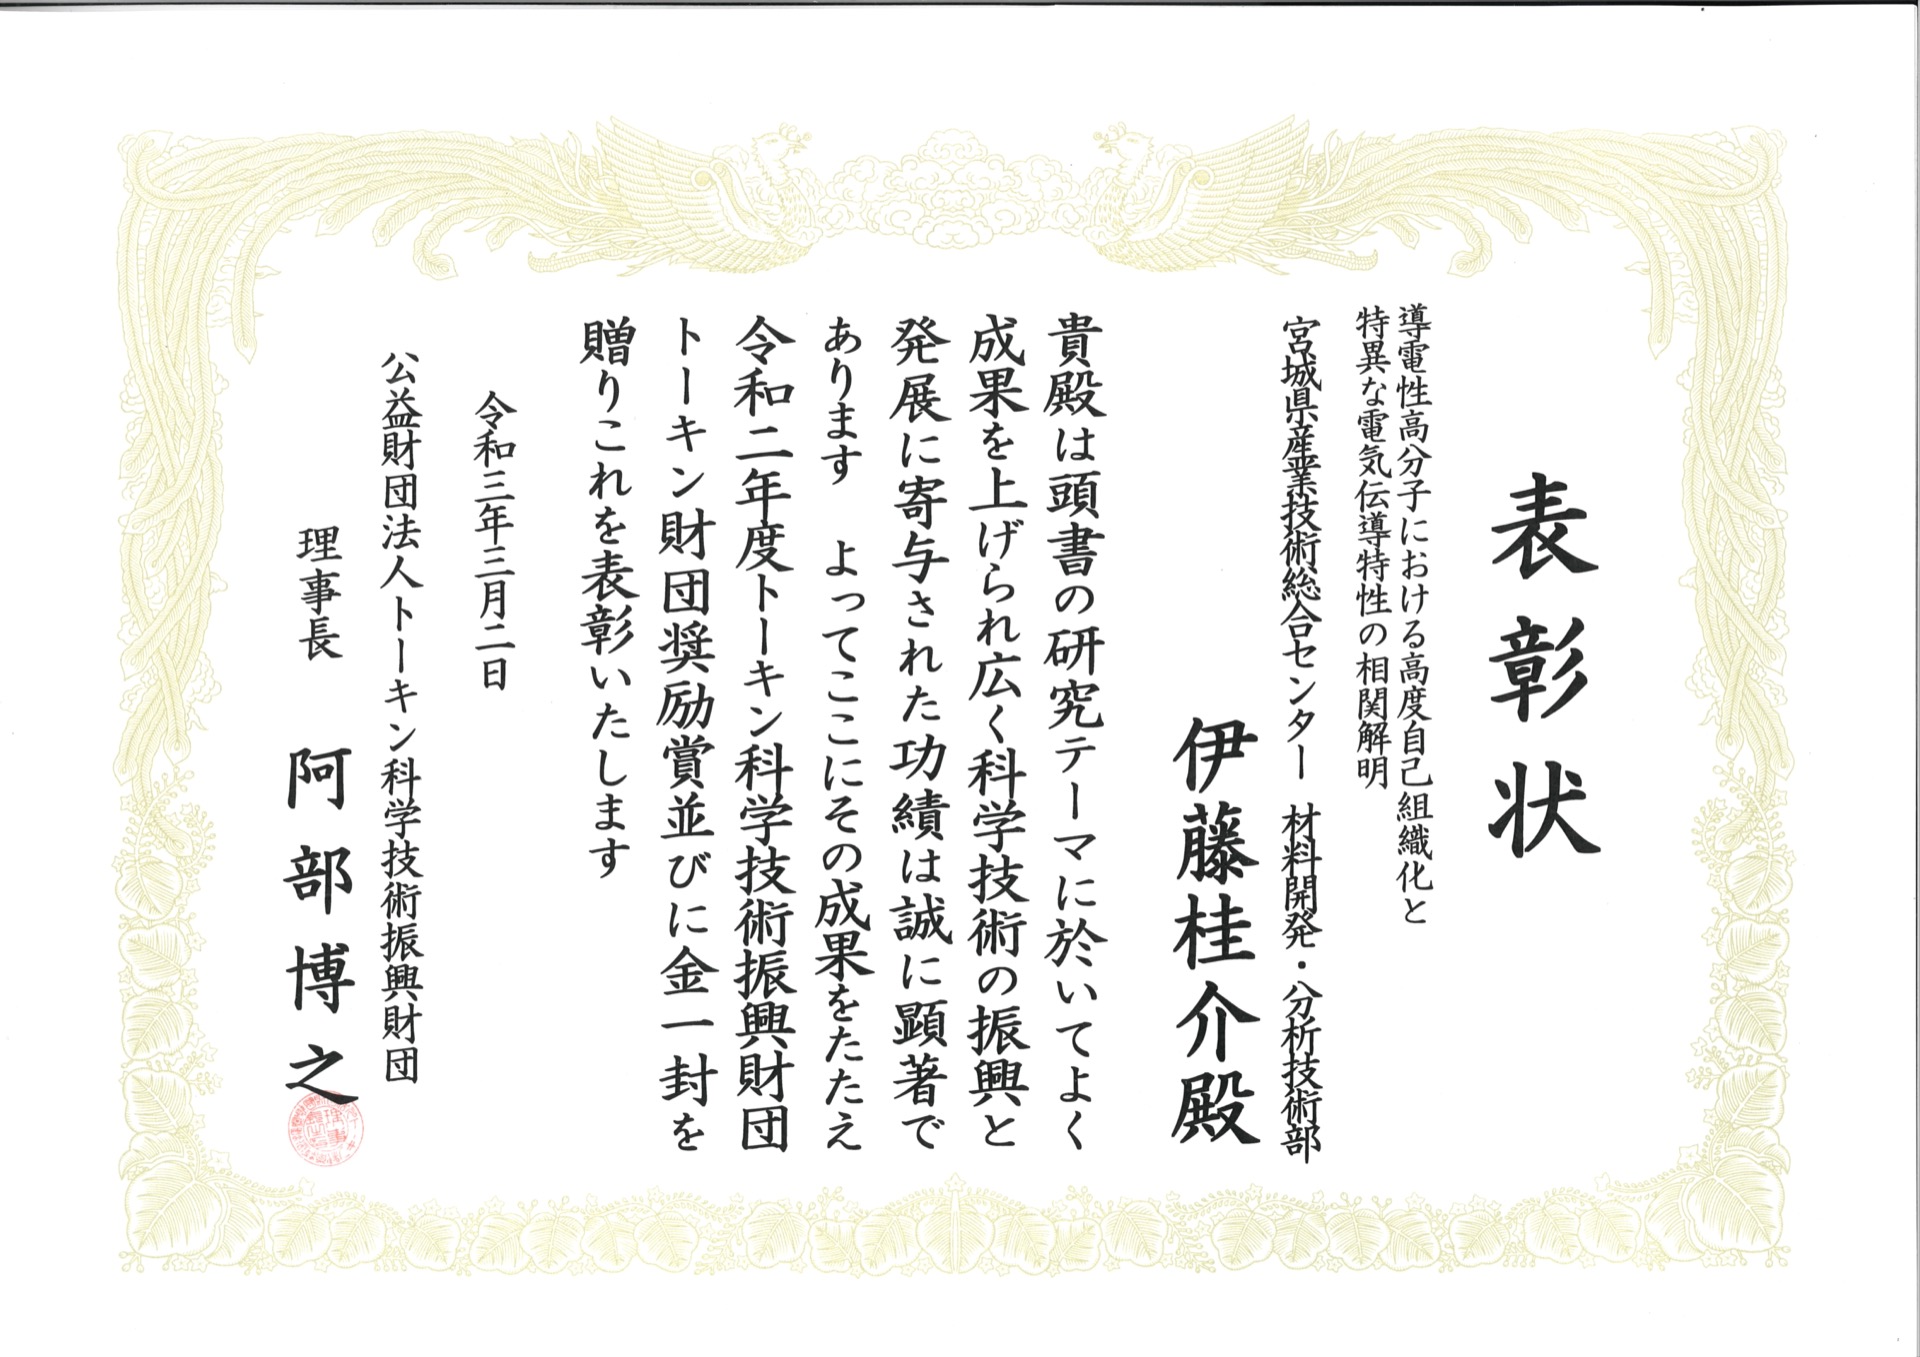 表彰状
導電性高分子における高度自己組織化と
特異な電気伝導特性の相関解明
宮城県産業技術総合センター 材料開発・分析技術部
伊藤桂介殿
貴殿は頭書の研究テーマに於いてよく
成果を上げられ広く科学技術の振興と
発展に寄与された功績は誠に顕著で
あります よってここにその成果をたたえ
令和二年度トーキン科学技術振興財団
トーキン財団奨励賞並びに金一封を
贈りこれを表彰いたします
令和三年三月二日
公益財団法人トーキン科学技術振興財団
理事長 阿部博之